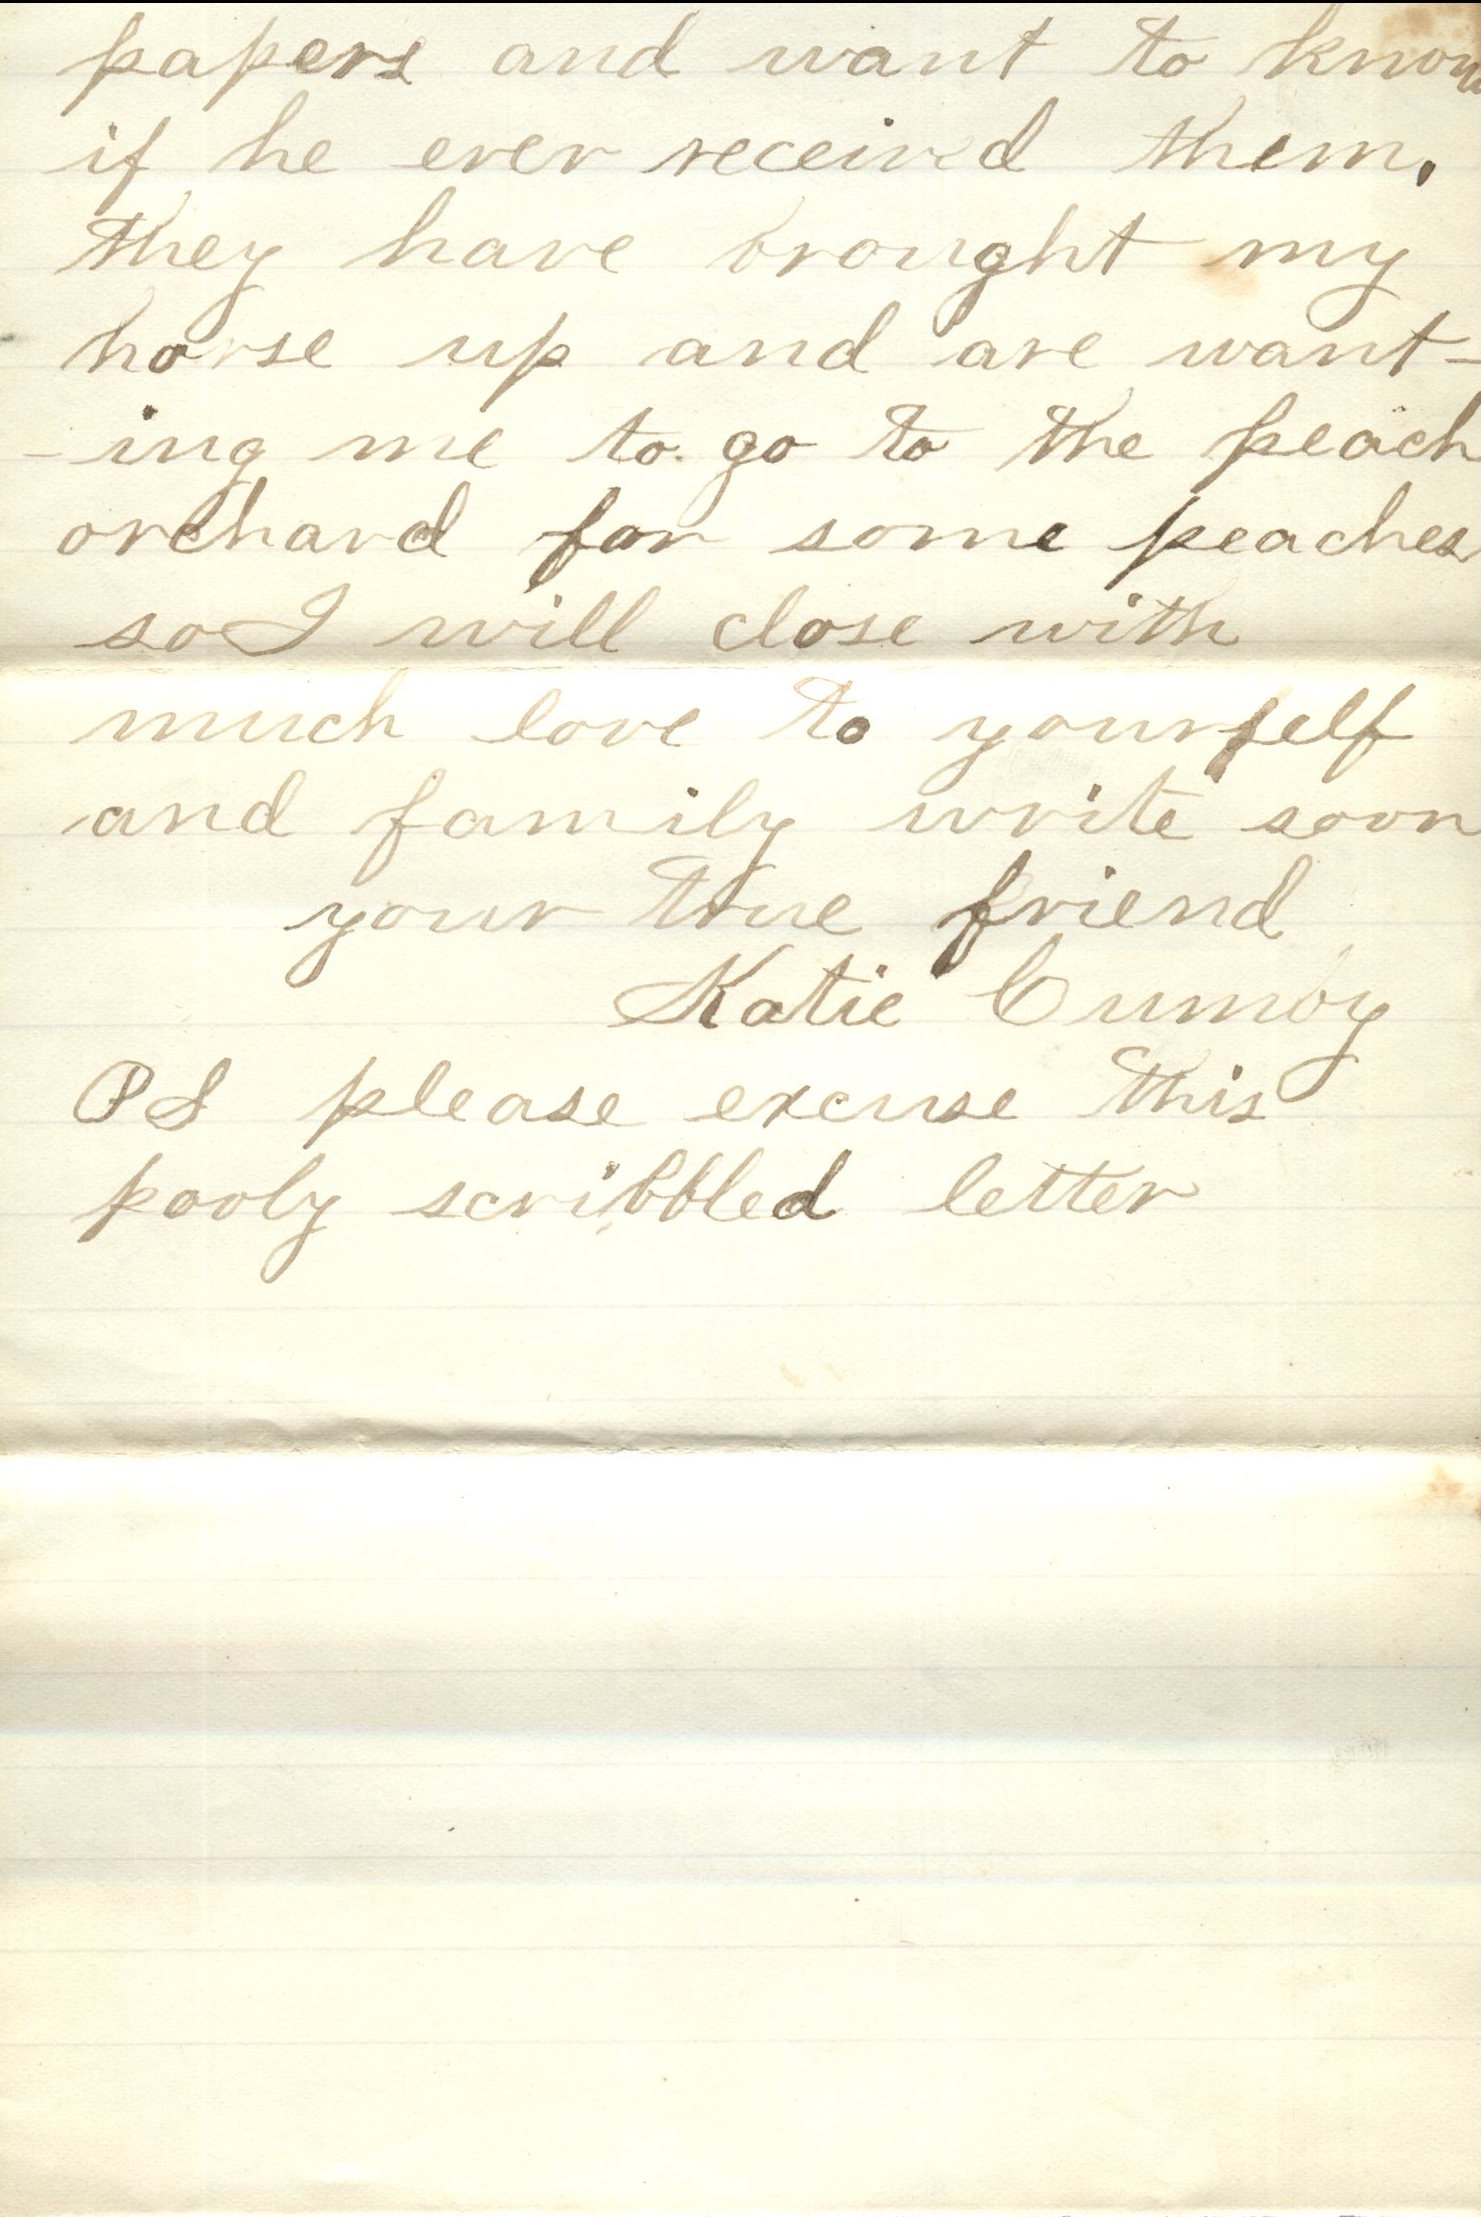 papers and want to know
if he ever received them.
they have brought my
horse up and are want-
-ing me to go to the peach
orchard for some peaches
so I will close with
much love to yourself
and family write soon
your true friend
Katie Cumby
PS please excuse this
pooly scribbled letter